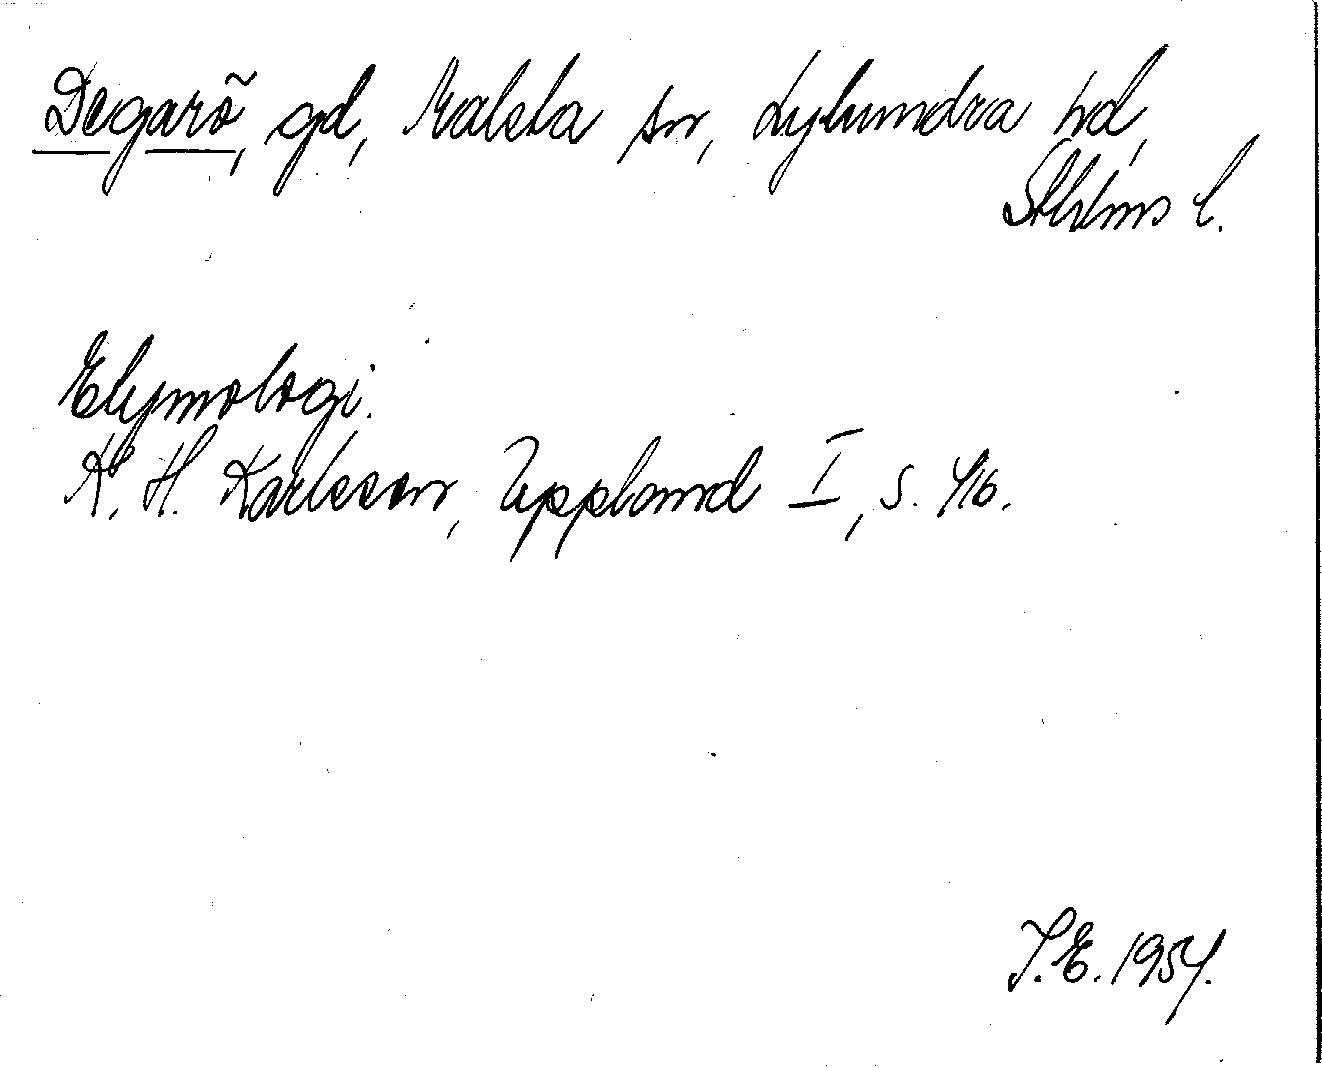 Degarö, gd, Malsta sn, Lyhundra hd,
Sthlms l.
Etymologi.
K. H. Karlsson, Uppland I, s. 46.
I.E. 1954.